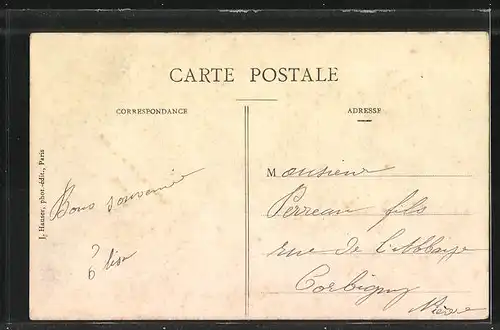 CARTE POSTALE
CORRESPONDANCE
ADRESSE
J. Hauser, phot.-édit., Paris
Bons souvenir
Monsieur
Perreau fils
rue de l'Abbaye
Corbigny
Nièvre